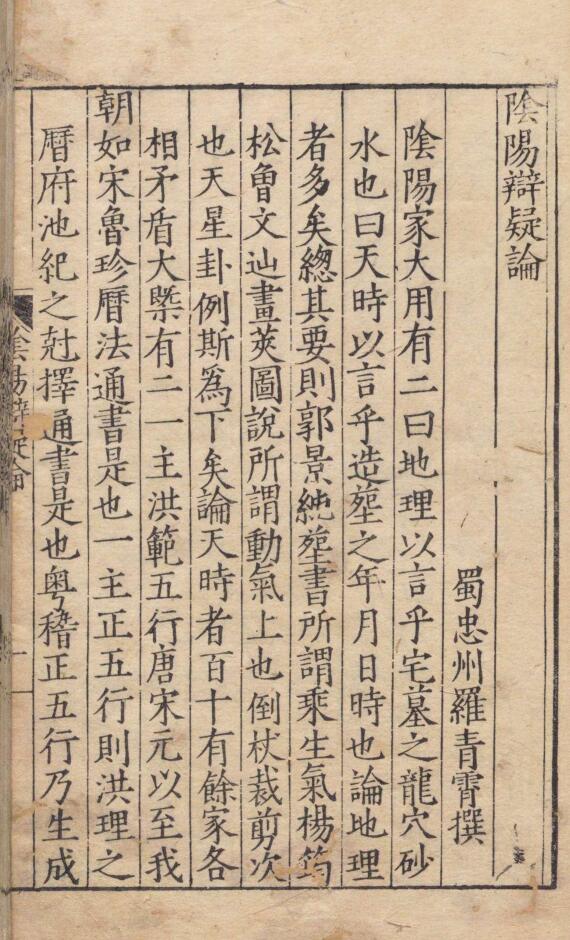 陰陽辯疑論
蜀忠州羅青霄撰
陰陽家大用有二曰地理以言乎宅墓之龍穴砂
水也曰天時以言乎造塟之年月日時也論地理
者多矣緫其要則郭景純塟書所謂乗生氣楊筠
松魯文辿畫莢圖說所謂動氣上也倒杖裁剪次
也天星卦例斯爲下矣論天時者百十有餘家各
相矛盾大槩有二一主洪範五行唐宋元以至我
朝如宋魯珍曆法通書是也一主正五行則洪理之
曆府池紀之尅擇通書是也粤稽正五行乃生成
陰陽辯疑論
一